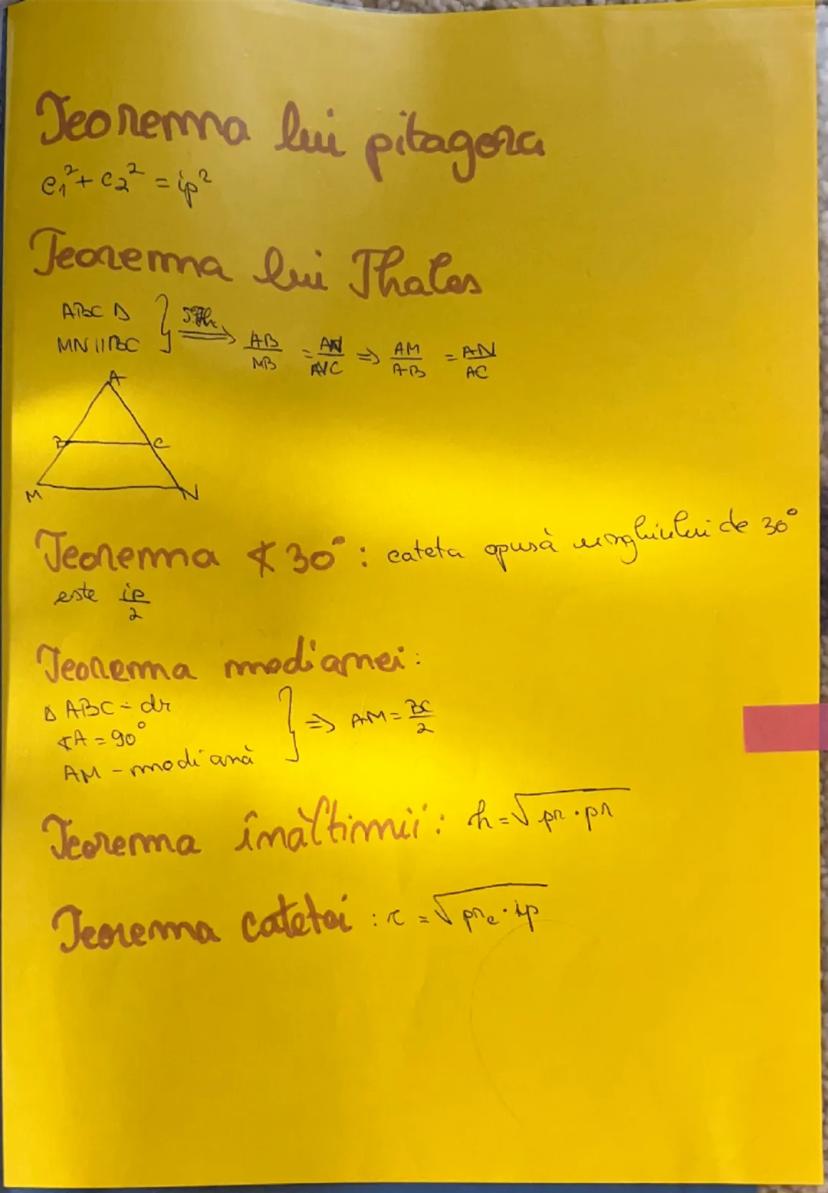 Teorema lui pitagora
c₁² + c₂² = ip²
Teorema lui Thales
ABC Δ
MN || BC } T.Th. ⟹ AB/MB = AN/NC ⇒ AM/AB = AN/AC
A
B C
M N
Teorema ∢ 30°: cateta opusă unghiului de 30°
este ip/2
Teorema medianei:
Δ ABC - dr
∢A = 90°
AM - mediană } ⇒ AM = BC/2
Teorema înălțimii: h = √pr · pr
Teorema catetei : c = √prc · ip